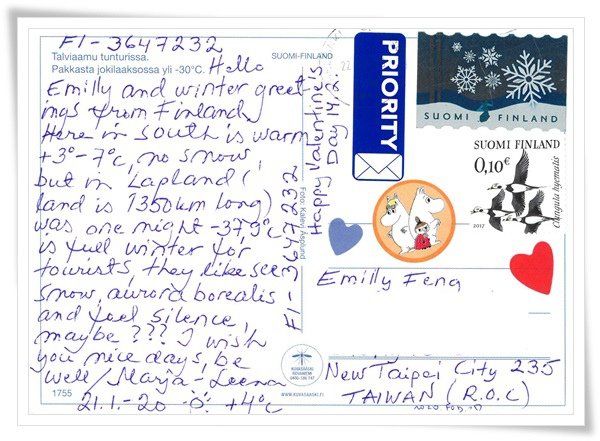 FI-3647232
Talviaamu tunturissa.
Pakkasta jokilaaksossa yli -30°C.
SUOMI-FINLAND
Hello
Emilly and winter greet-
ings from Finland
Here in south is warm
+3°-7°c, no snow,
but in Lapland (
land is 1350km long)
was one night -37,9°c
is full winter for
tourists, they like see
snow, aurora borealis
and feel silence,
maybe??? I wish
you nice days, be
well/Marja-Leena
21.1.-20 -0- +4°c
1755
Foto: Kalevi Asplund
FI-3647232
Happy Valentine's
Day 14.2.
PRIORITY
SUOMI FINLAND
SUOMI FINLAND
0,10€
Clangula hyemalis
2017
Emilly Feng
New Taipei City 235
TAIWAN (R.O.C)
KUVASÄÄSKI
ROVANIEMI
WWW.KUVASAASKI.FI